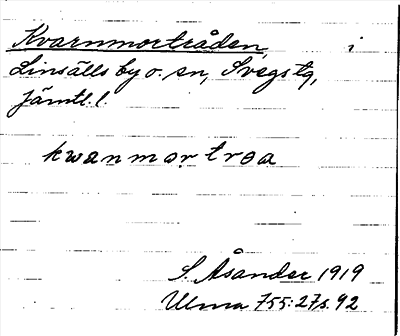 Kvarnmortråden, i
Linsälls by o. sn, Svegs tg,
Jämtl. l.
kwanmortroa
S. Åsander 1919
Ulma 755:27 s. 92